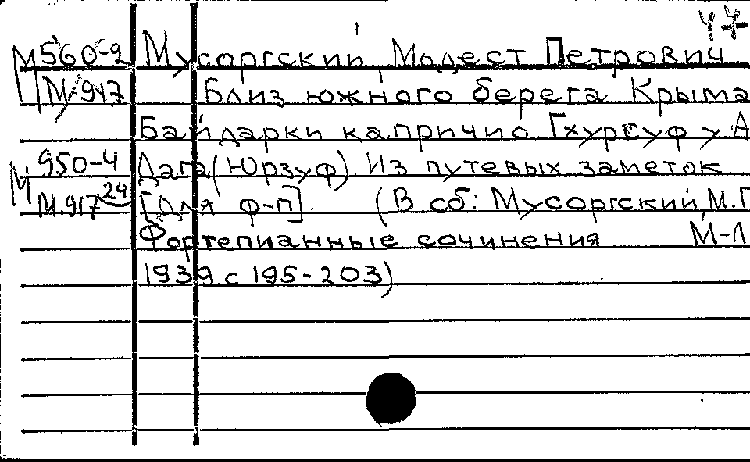 47
М560-2 Мусоргский, Модест Петрович
М-947 Близ южного берега Крыма
Байдарки каприччио Гхурсуф у А
М 950-4 Дага (Юрзуф) Из путевых заметок
М.917 24 [Для ф-п] (В сб: Мусоргский, М.П
Фортепианные сочинения М-Л
1939 с 195-203)